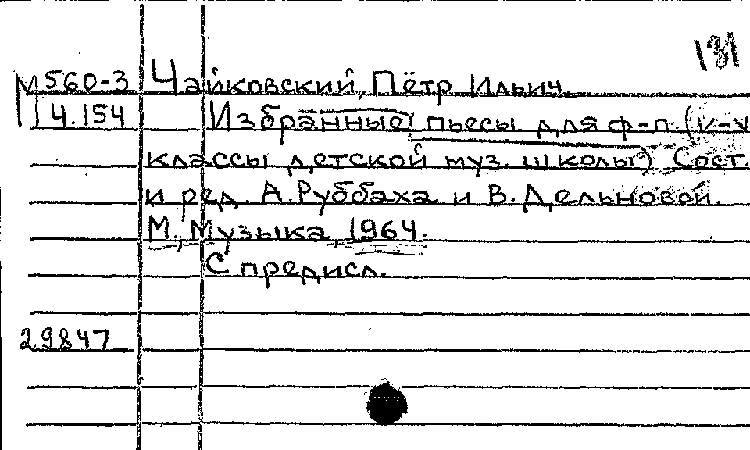 131
М560-3 Чайковский, Пётр Ильич.
4.154 Избранные пьесы для ф-п. (I-V
классы детской муз. школы) Сост.
и ред. А. Руббаха и В. Дельновой.
М., Музыка, 1964.
С предисл.
29847